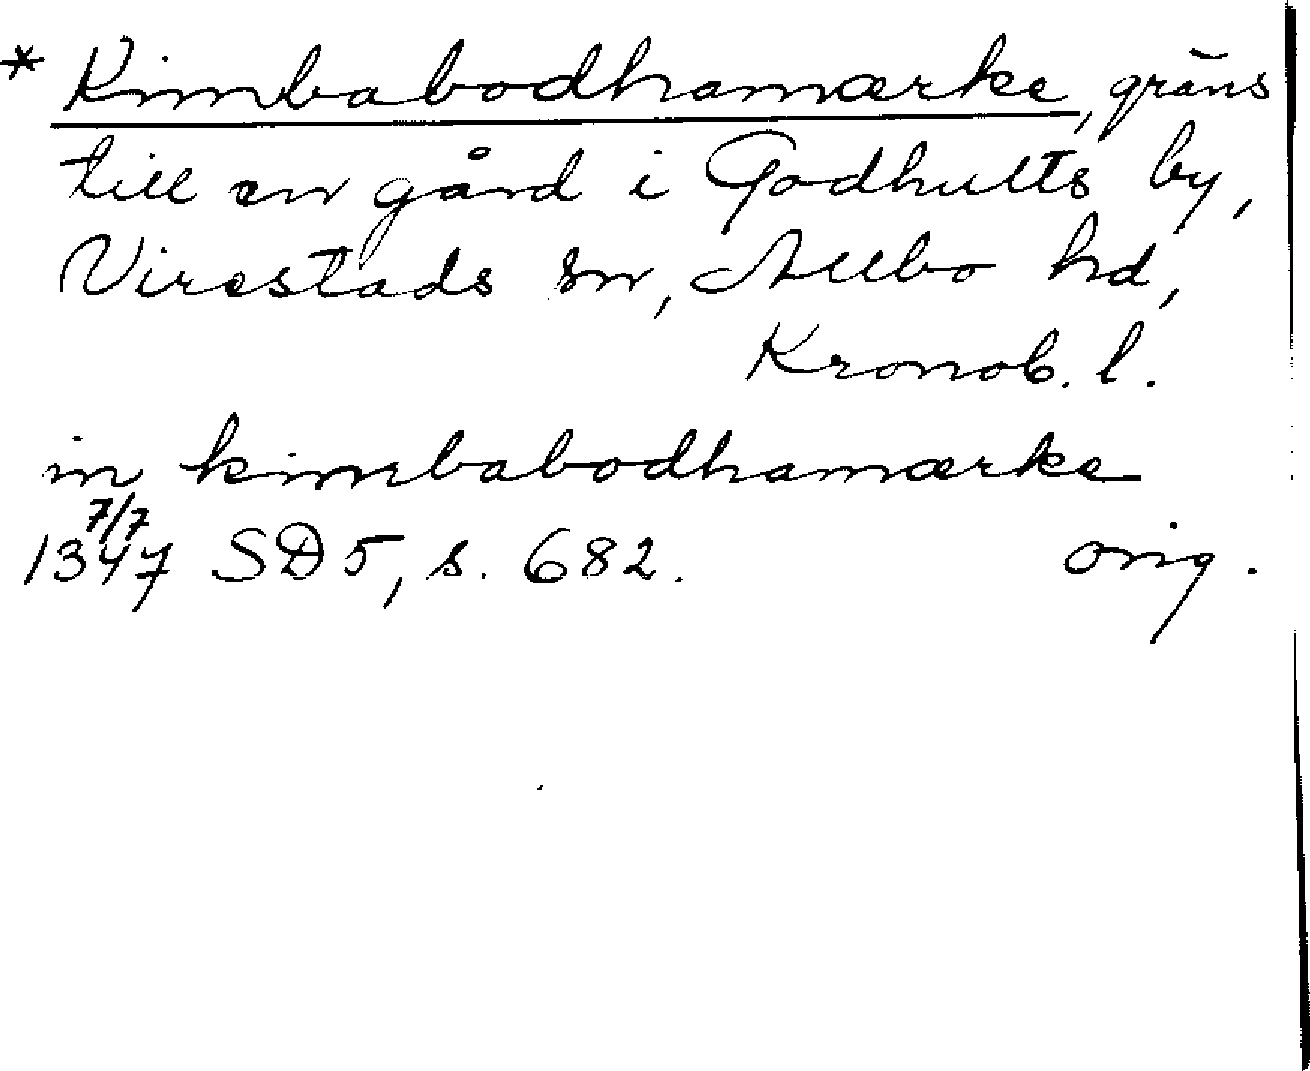 * Kimbabodhamærke, gräns
till en gård i Godhults by,
Virestads sn, Allbo hd,
Kronob. l.
in kimbabodhamærke
7/7
1347 SD 5, s. 682. orig.